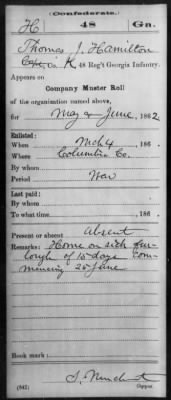 (Confederate.)
H 48 Ga.
Thomas J. Hamilton
Co. K, 48 Reg't Georgia Infantry.
Appears on
Company Muster Roll
of the organization named above,
for May & June, 1862
Enlisted:
When Mch 4, 186 .
Where Columbia Co.
By whom
Period War
Last paid:
By whom
To what time , 186 .
Present or absent Absent
Remarks: Home on sick fur-
lough of 15 days com-
mencing 25 June
Book mark:
(642) Copyist.